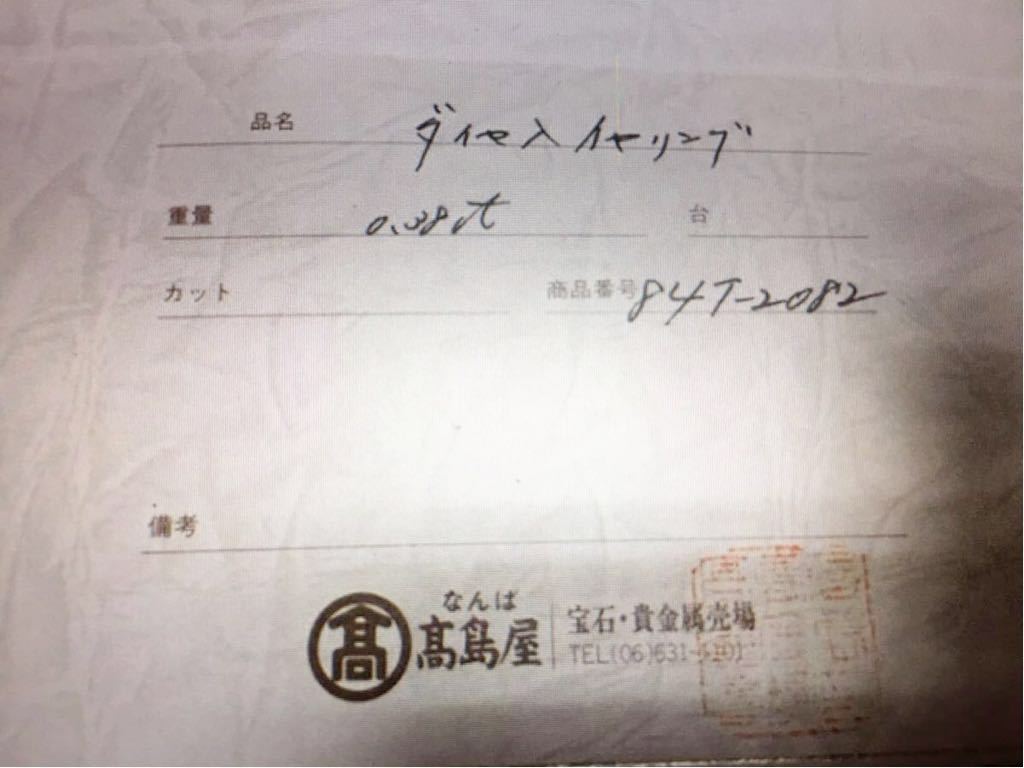 品名 ダイヤ入イヤリング
重量 0.38ct 台
カット 商品番号 84T-2082
備考
なんば
髙 髙島屋 宝石・貴金属売場
TEL(06)631-1101